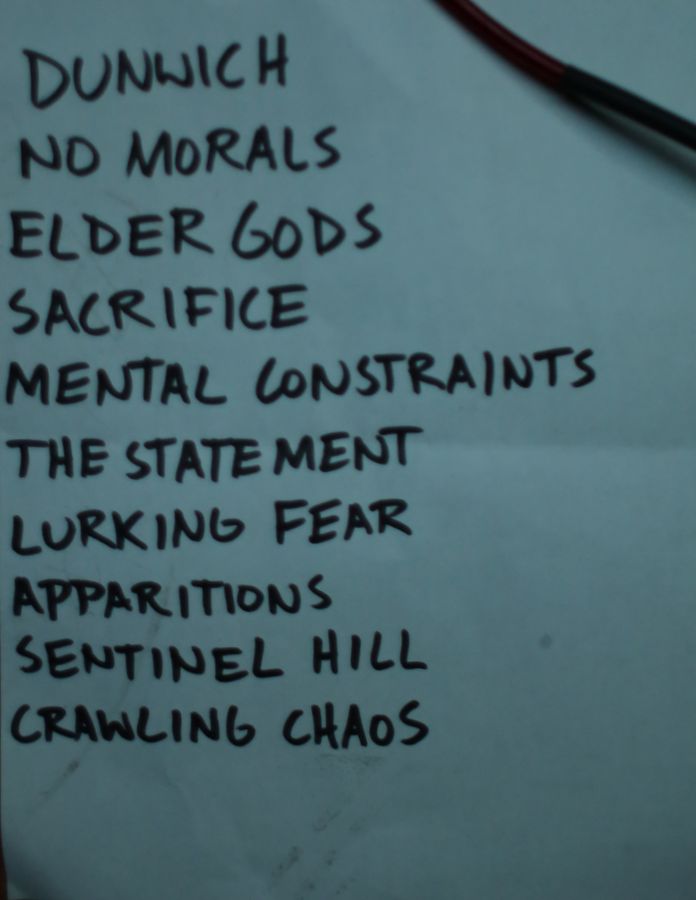 DUNWICH
NO MORALS
ELDER GODS
SACRIFICE
MENTAL CONSTRAINTS
THE STATEMENT
LURKING FEAR
APPARITIONS
SENTINEL HILL
CRAWLING CHAOS